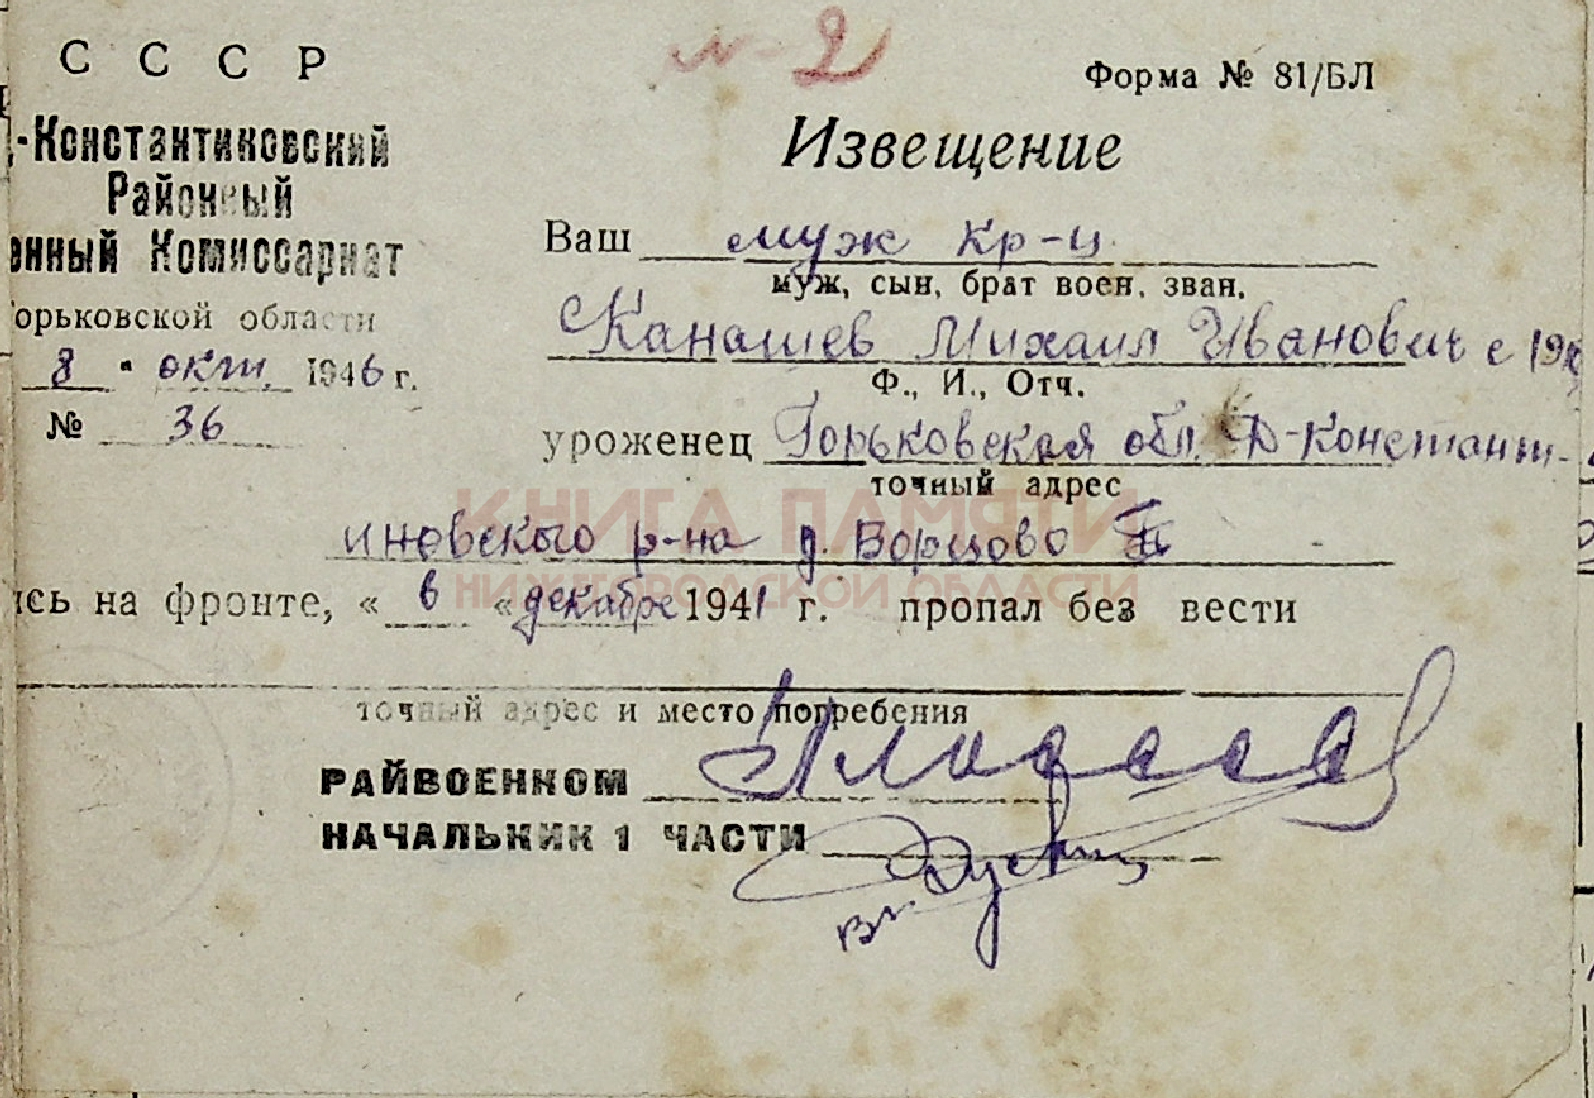 № 2
С С С Р
Форма № 81/БЛ
-Константиновский
Районный
енный Комиссариат
орьковской области
8 " окт. 1946 г.
№ 36
Извещение
Ваш муж кр-ц
муж, сын, брат воен. зван.
Канашев Михаил Иванович с
Ф., И., Отч.
уроженец Горьковская обл. Д-Констант-
точный адрес
иновского р-на д. Борцово
КНИГА ПАМЯТИ
НИЖЕГОРОДСКОЙ ОБЛАСТИ
ись на фронте, « в « декабре 1941 г. пропал без вести
точный адрес и место погребения
РАЙВОЕНКОМ
НАЧАЛЬНИК 1 ЧАСТИ